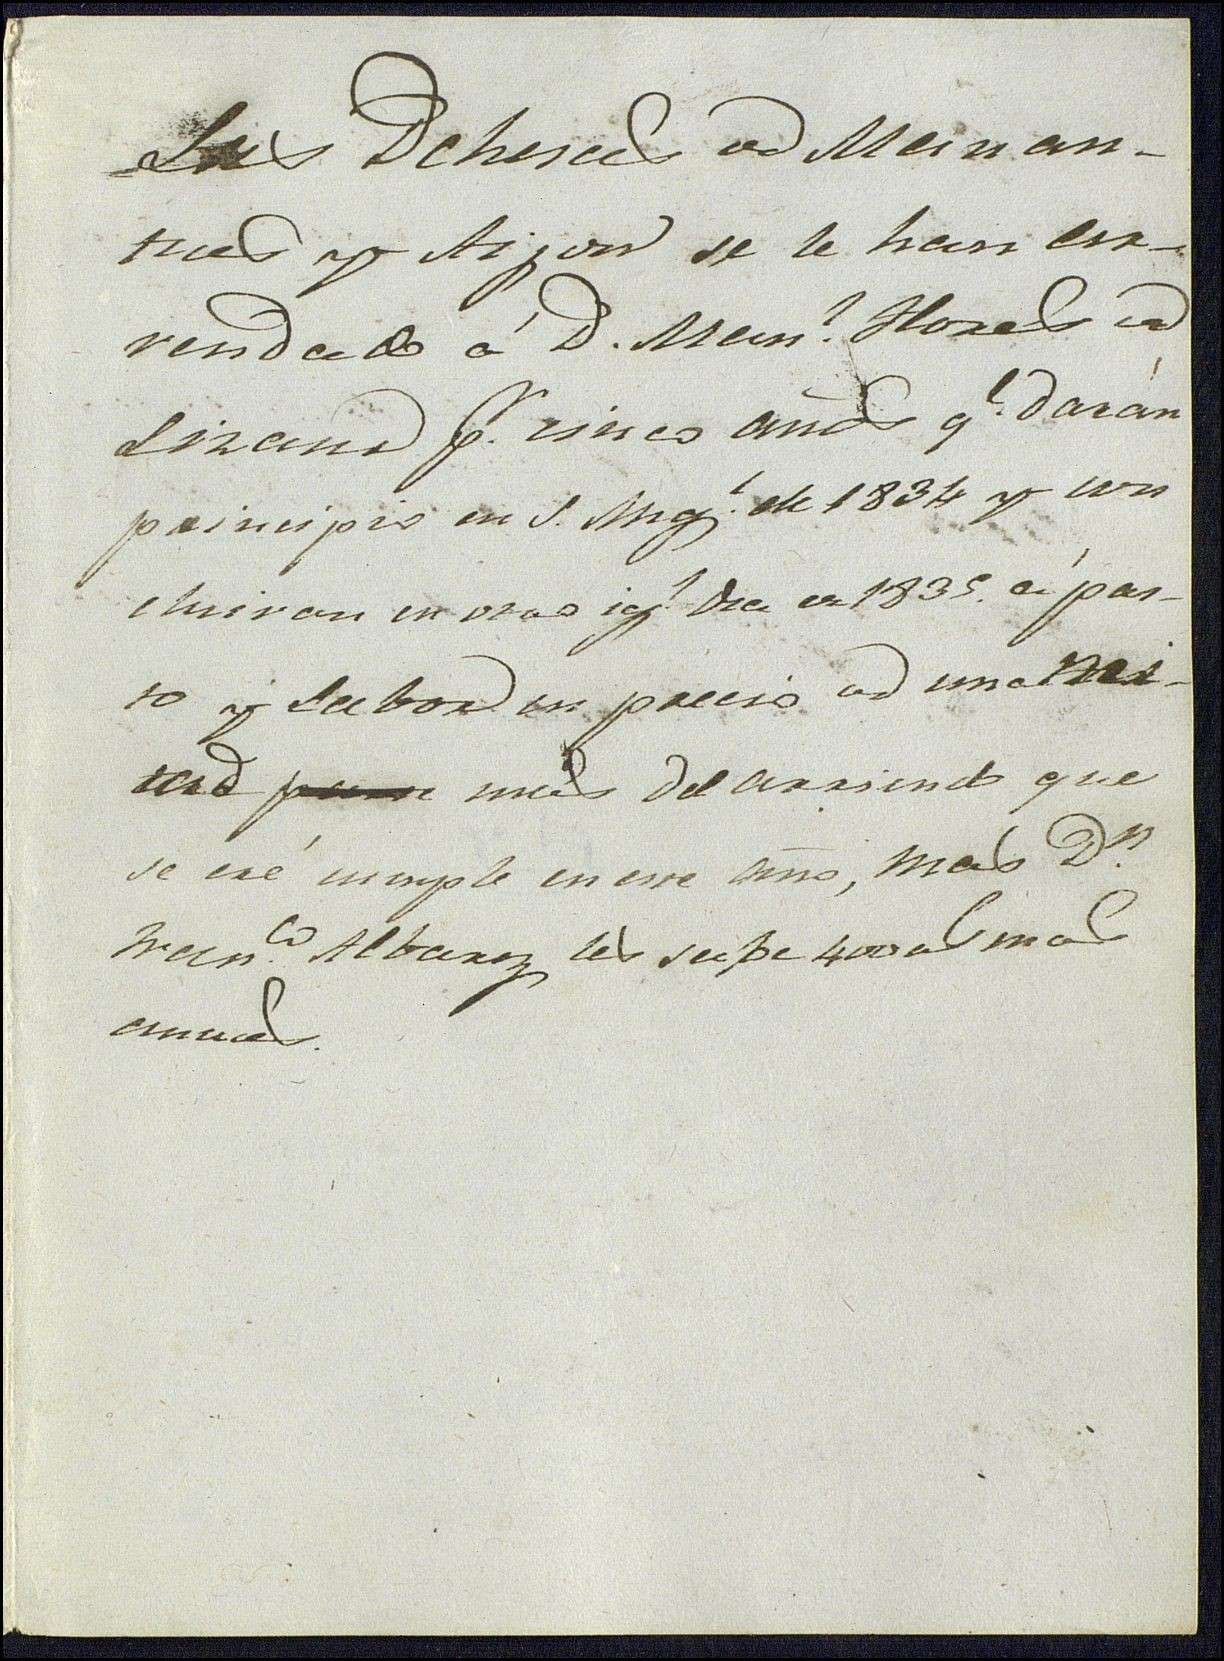 Las Dehesas de Manan-
tues y Aijon se le han arr-
rendado á D. Man.l Flores de
Lizana p.r cinco años q.e darán
principio en S. Mig.l de 1834 y con
cluiran en otro ig.l dia de 1835. á pas-
to y Labor en precio de una mi-
tad mas del arriendo que
se cré cumple en este año, mas D.n
Fran.co Albarez les sube 400 as mas
anuas.